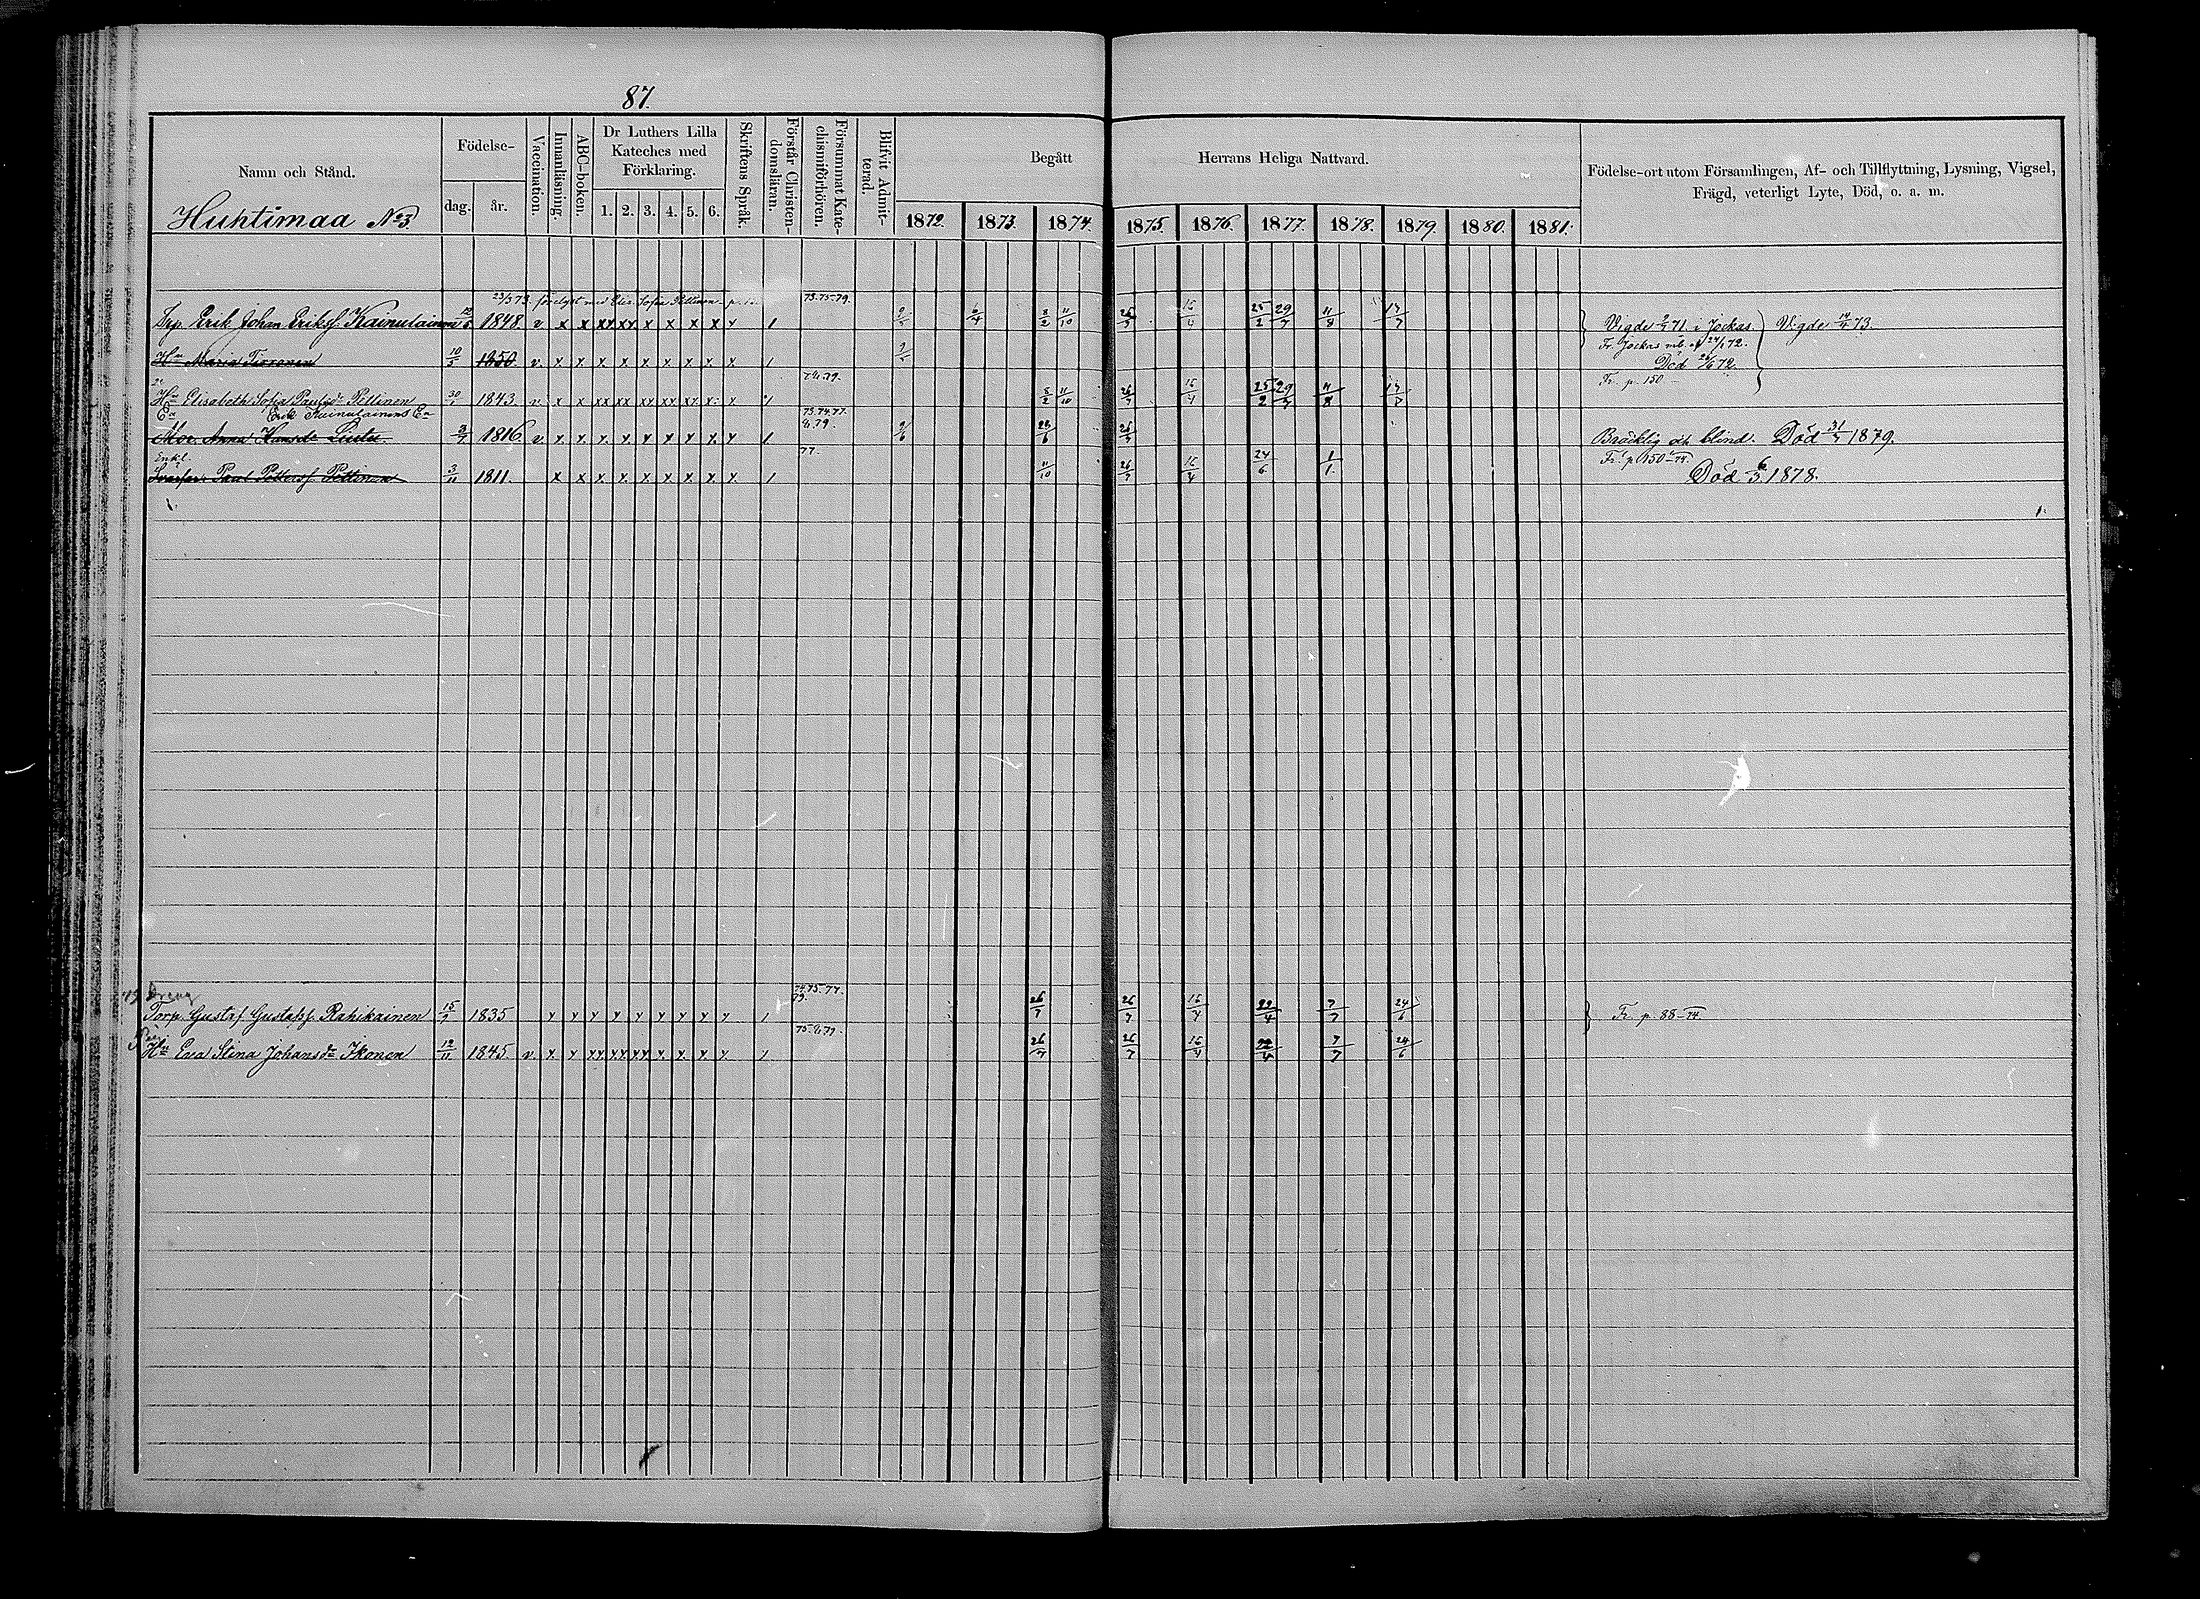 87.
Namn och Stånd.
Huhtimaa No 3
Födelse-
dag.
år.
Vaccination.
Innanläsning.
ABC-boken.
Dr Luthers Lilla
Kateches med
Förklaring.
1. 2. 3. 4. 5. 6.
Skriftens Språk.
Förstår Christen-
domsläran.
Försummat Kate-
chismiförhören.
Blifvit Admit-
terad.
Begått Herrans Heliga Nattvard.
1872. 1873. 1874. 1875. 1876. 1877. 1878. 1879. 1880. 1881.
Födelse-ort utom Församlingen, Af- och Tillflyttning, Lysning, Vigsel,
Frägd, veterligt Lyte, Död, o. a. m.
23/3 73. förelyst med Elis. Sofia Pettinen 73.75.79.
Erik Johan Eriksf. Kainulainen 1848. v. x x xx xx x x x x x 1 8/2 11/10 26/7 16/4 25/2 29/7 11/8 17/7 Vigde 71. i Jockas. Vigde 14/4 73.
Fr. Jockas
Hu Maria Tirronen 10/5 1850 v. x x x x x x x x x 1 Död 72.
Fr. p. 150
Hu Elisabeth Sofia Paulsdr Pettinen 30/1 1843. v. x x xx xx x xx xx x x 1 8/2 11/10 26/7 16/4 25/2 29/7 11/8 17/7
Erik Kainulainens Ea 73.74.77.
Mor Anna Hansdr Liuta 1816. v. x x x x x x x x x 1 26/7 Bräcklig och blind. Död 31/7 1879.
Enkl. 77. Fr. p. 150-74.
Svärfar Paul Pettersf. Pettinen 3/11 1811. x x x x x x x x x 1 11/10 26/7 16/4 24/6 1/1 Död 6/3 1878.
Dreng 74.75.77.
79.
Torp. Gustaf Gustafsf. Rahikainen 15/7 1835 x x x x x x x x x 1 26/7 26/7 16/4 22/4 7/7 24/6 Fr. p. 88-74
Hu Eva Stina Johansdr Ikonen 12/11 1845. v. x x xx xx xx x x x x 1 26/7 26/7 16/4 22/4 7/7 24/6